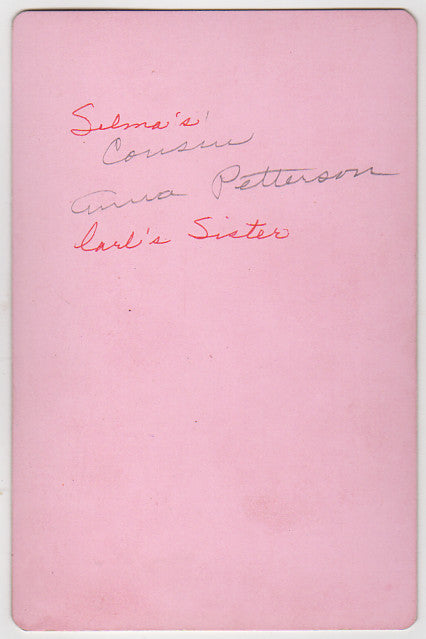 Selma's
Cousin
Anna Petterson
Carl's Sister